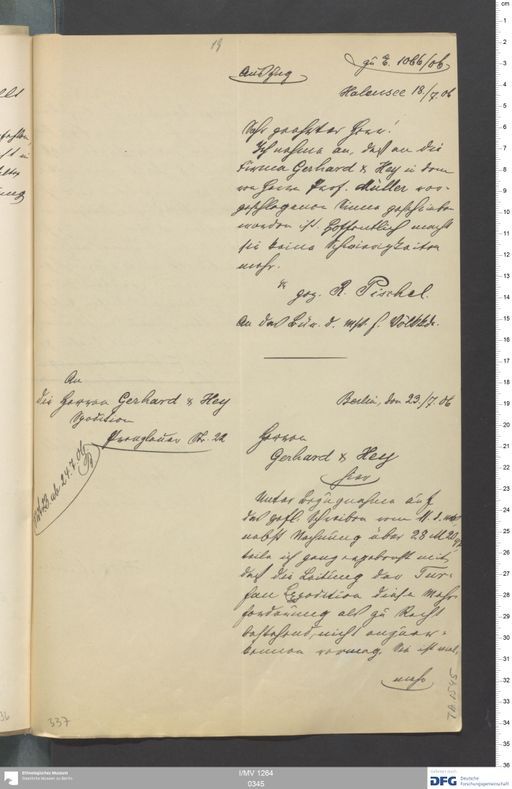 19
zu E. 1086/06
Auszug
Halensee 18/7. 06
Sehr geehrter Herr!
Ich nehme an, daß an die
Firma Gerhard & Hey in dem
von Herrn Prof. Müller vor-
geschlagenen Sinne geschrieben
worden ist. Hoffentlich macht
sie keine Schwierigkeiten
mehr.
gez. R. Pischel.
An das Bür. d. Mus. f. Völkkde.
An
die Herren Gerhard & Hey
Spedition
Prenzlauer Str. 22
ab 24.7.06
Berlin, den 23/7 06
Herren
Gerhard & Hey
hier
Unter Bezugnahme auf
das gefl. Schreiben vom 11. d.
nebst Rechnung über 28 M
teile ich ganz ergebenst mit,
daß die Leitung der Tur-
fan Expedition diese Mehr
forderung als zu Recht
bestehend nicht anzuer-
kennen vermag. Sie ist viel-
mehr
TA. 1545
337
I/MV 1264
0345
Ethnologisches Museum
Staatliche Museen zu Berlin
DFG Deutsche
Forschungsgemeinschaft